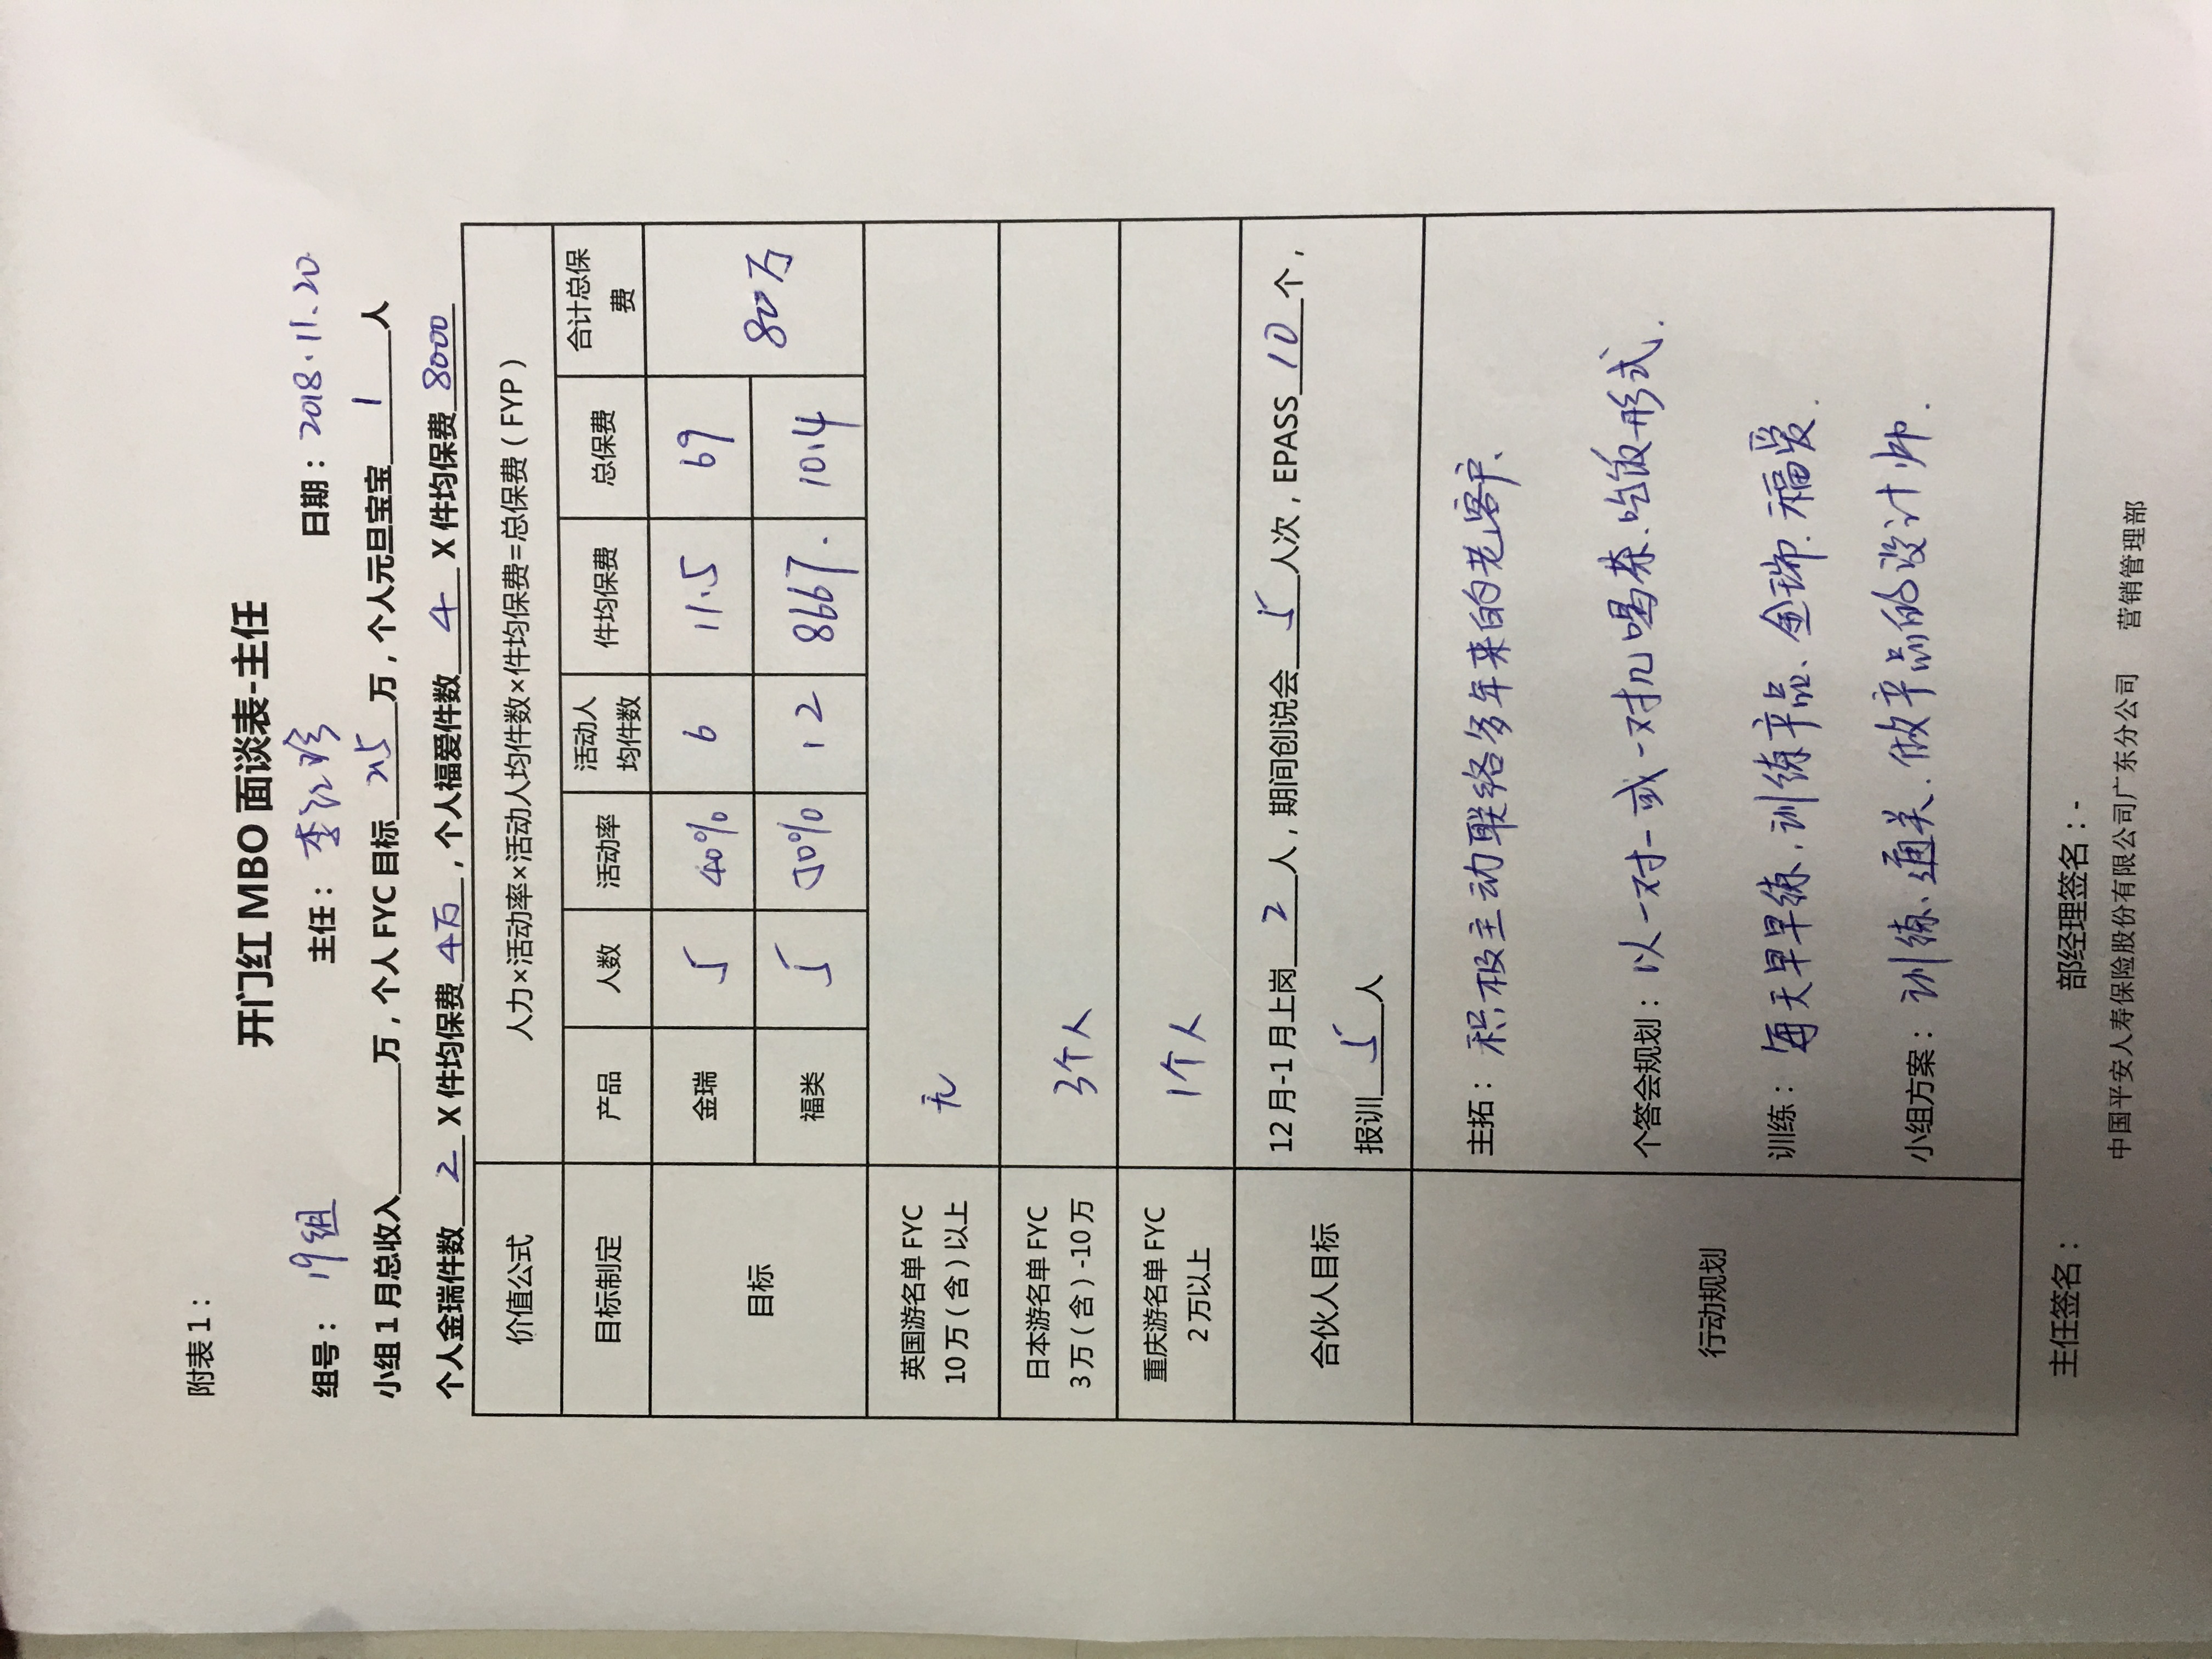 附表1：
开门红 MBO 面谈表-主任
组号： 19组 主任： 李江珍 日期：2018.11.20
小组1月总收入______万，个人 FYC 目标 25 万，个人元旦宝宝 1 人
个人金瑞件数 2 X 件均保费 4万 ，个人福爱件数 4 X 件均保费 8000
价值公式 人力×活动率×活动人均件数×件均保费=总保费（FYP）
目标制定 产品 人数 活动率 活动人均件数 件均保费 总保费 合计总保费
目标 金瑞 5 40% 6 11.5 69 80万
福类 5 50% 12 8667. 10.4
英国游名单 FYC
10万（含）以上 无
日本游名单 FYC
3万（含）-10万 3个人
重庆游名单 FYC
2万以上 1个人
合伙人目标 12月-1月上岗 2 人，期间创说会 5 人次，EPASS 10 个，
报训 5 人
行动规划
主拓： 积极主动联络多年来的老客户、
个答会规划：以一对一或一对几喝茶、吃饭形式.
训练： 每天早早练，训练产品、金瑞.福爱.
小组方案： 训练、通关、做产品的设计师.
主任签名： 部经理签名：-
中国平安人寿保险股份有限公司广东分公司 营销管理部